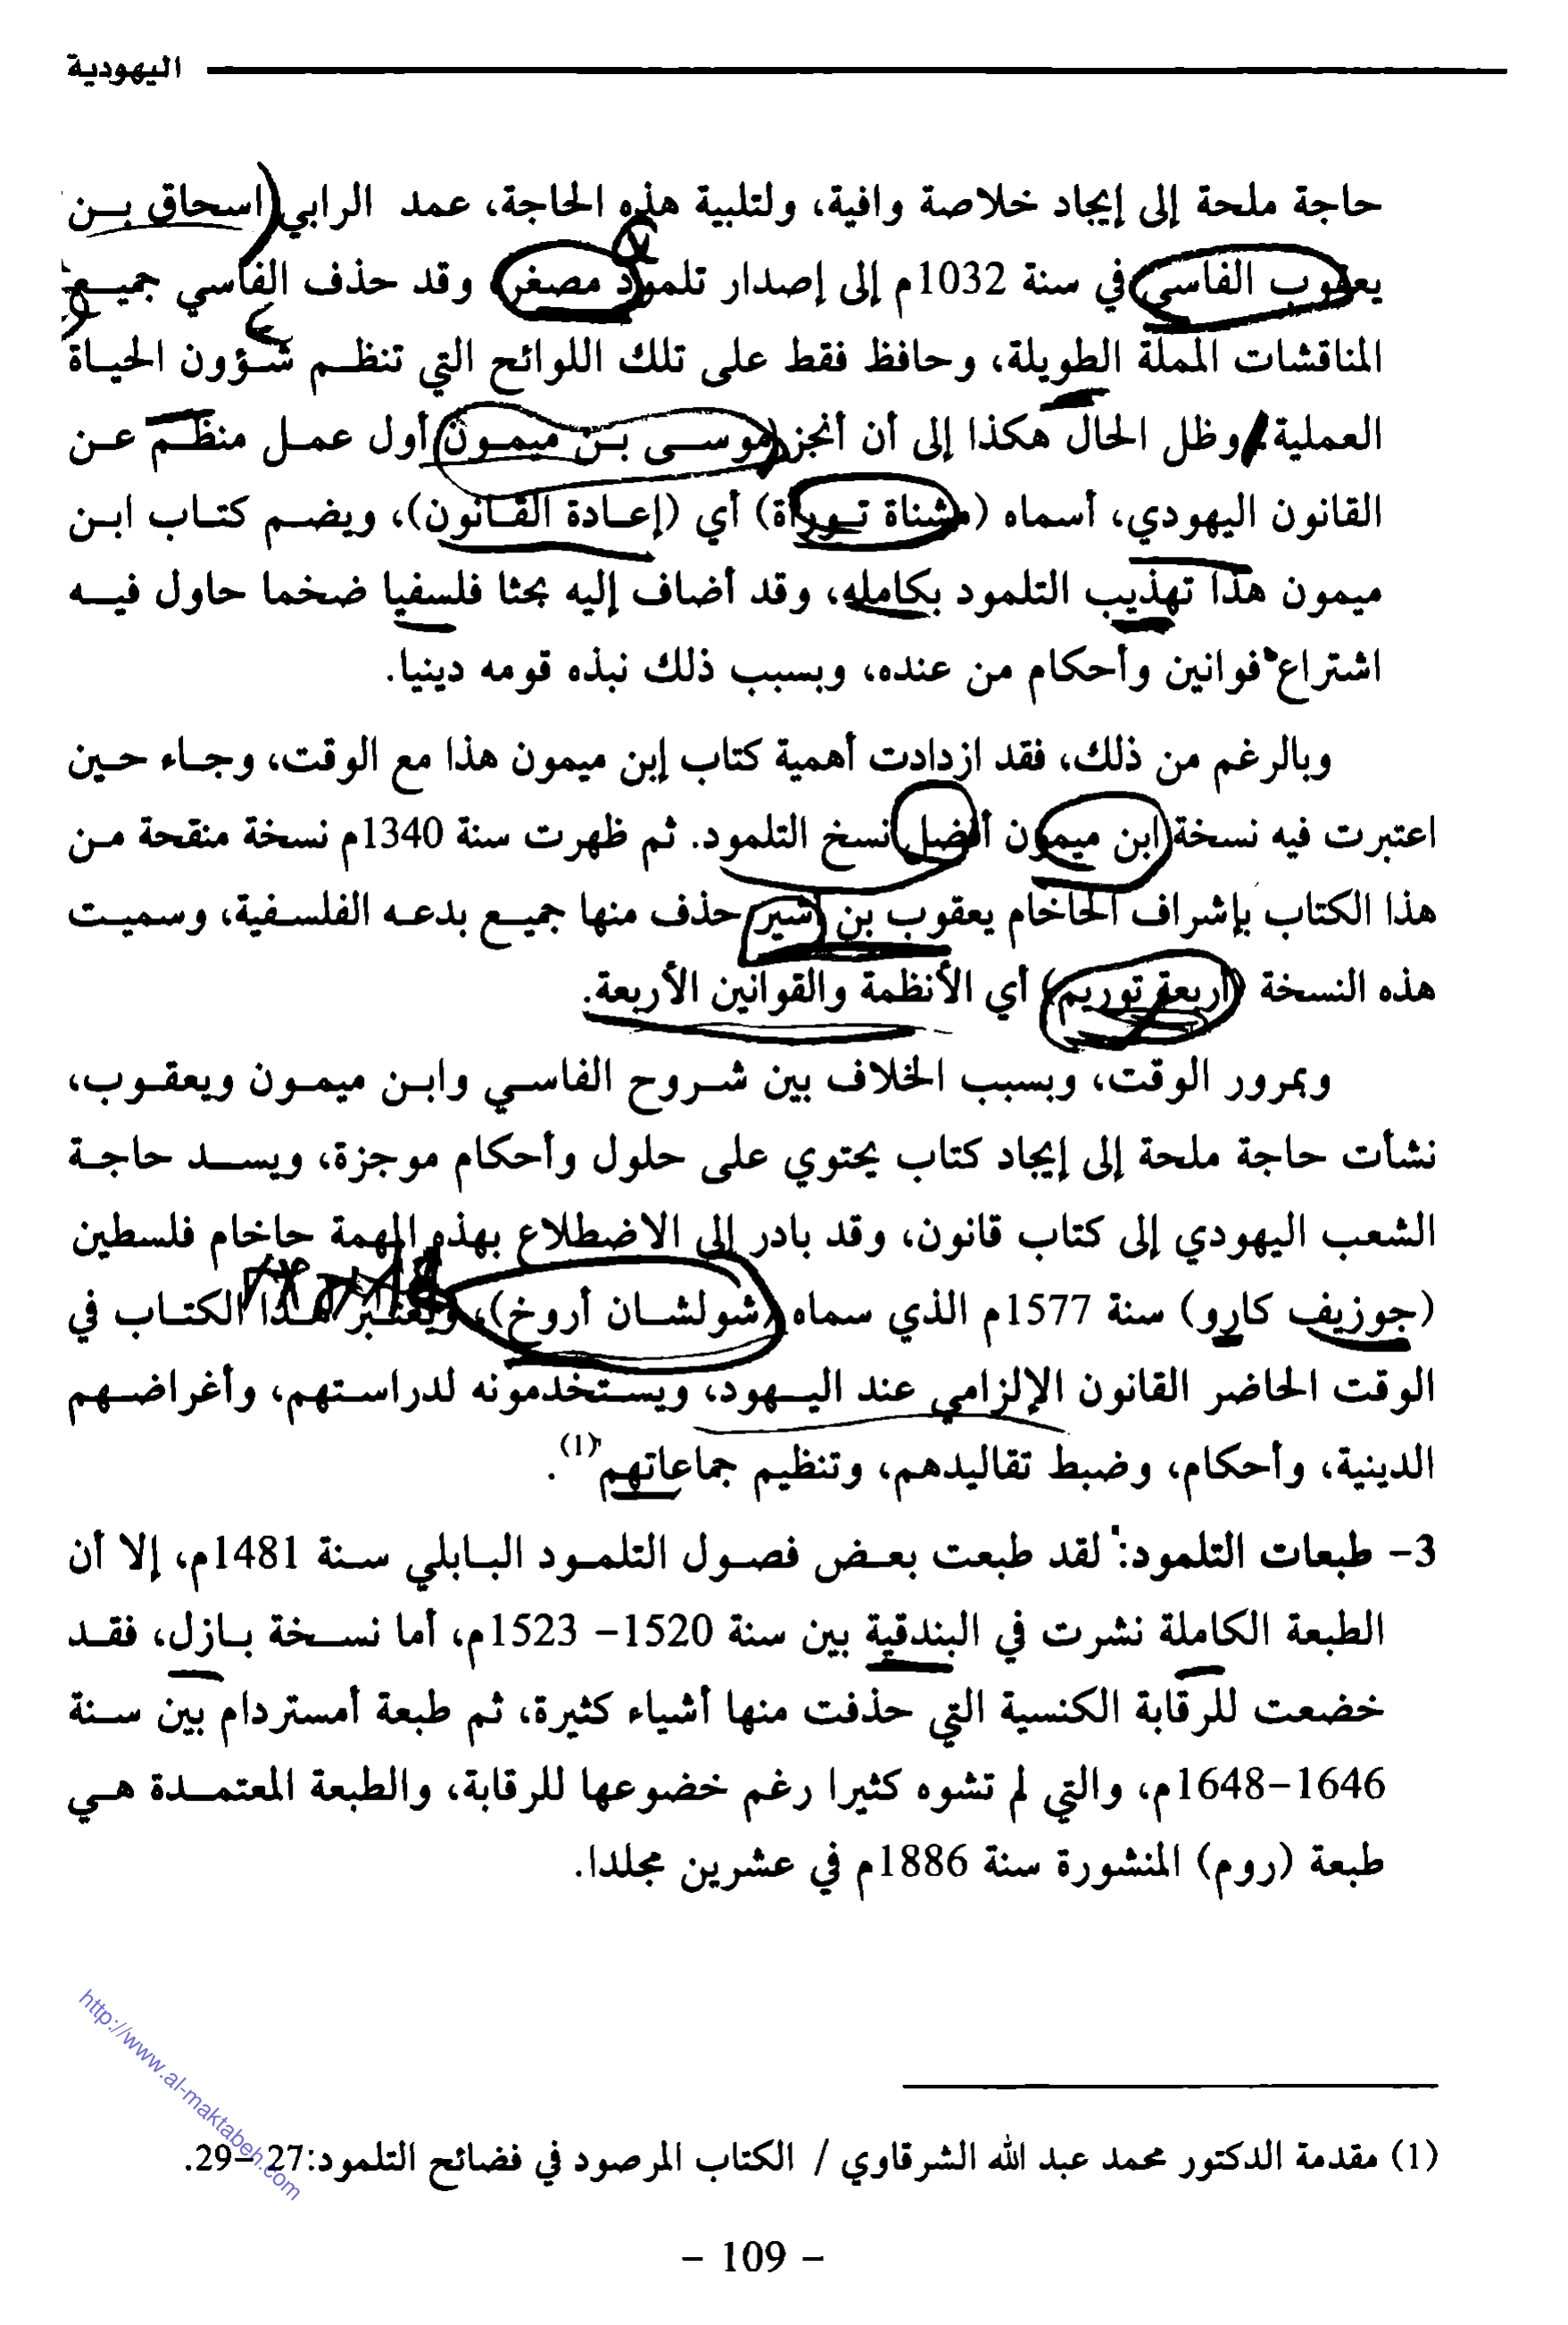 اليهودية
حاجة ملحة إلى إيجاد خلاصة وافية، ولتلبية هذه الحاجة، عمد الرابي (اسحاق بن
يعقوب الفاسي) في سنة 1032م إلى إصدار تلمود مصغر، وقد حذف الفاسي جميع
المناقشات المملة الطويلة، وحافظ فقط على تلك اللوائح التي تنظم شؤون الحياة
العملية. وظل الحال هكذا إلى أن أنجز (موسى بن ميمون) أول عمل منظم عن
القانون اليهودي، أسماه (مشناة توراة) أي (إعادة القانون)، ويضم كتاب ابن
ميمون هذا تهذيب التلمود بكامله، وقد أضاف إليه بحثا فلسفيا ضخما حاول فيه
اشتراع قوانين وأحكام من عنده، وبسبب ذلك نبذه قومه دينيا.
وبالرغم من ذلك، فقد ازدادت أهمية كتاب إبن ميمون هذا مع الوقت، وجاء حين
اعتبرت فيه نسخة ابن ميمون أفضل نسخ التلمود. ثم ظهرت سنة 1340م نسخة منقحة من
هذا الكتاب بإشراف الحاخام يعقوب بن أشير حذف منها جميع بدعه الفلسفية، وسميت
هذه النسخة (أربعة توريم) أي الأنظمة والقوانين الأربعة.
وبمرور الوقت، وبسبب الخلاف بين شروح الفاسي وابن ميمون ويعقوب،
نشأت حاجة ملحة إلى إيجاد كتاب يحتوي على حلول وأحكام موجزة، ويسد حاجة
الشعب اليهودي إلى كتاب قانون، وقد بادر إلى الاضطلاع بهذه المهمة حاخام فلسطين
(جوزيف كارو) سنة 1577م الذي سماه (شولشان أروخ)، ويعتبر هذا الكتاب في
الوقت الحاضر القانون الإلزامي عند اليهود، ويستخدمونه لدراستهم، وأغراضهم
الدينية، وأحكام، وضبط تقاليدهم، وتنظيم جماعاتهم(1).
3- طبعات التلمود: لقد طبعت بعض فصول التلمود البابلي سنة 1481م، إلا أن
الطبعة الكاملة نشرت في البندقية بين سنة 1520- 1523م، أما نسخة بازل، فقد
خضعت للرقابة الكنسية التي حذفت منها أشياء كثيرة، ثم طبعة أمستردام بين سنة
1646-1648م، والتي لم تشوه كثيرا رغم خضوعها للرقابة، والطبعة المعتمدة هي
طبعة (روم) المنشورة سنة 1886م في عشرين مجلدا.
http://www.al-maktabeh.com
(1) مقدمة الدكتور محمد عبد الله الشرقاوي / الكتاب المرصود في فضائح التلمود:27-29.
- 109 -